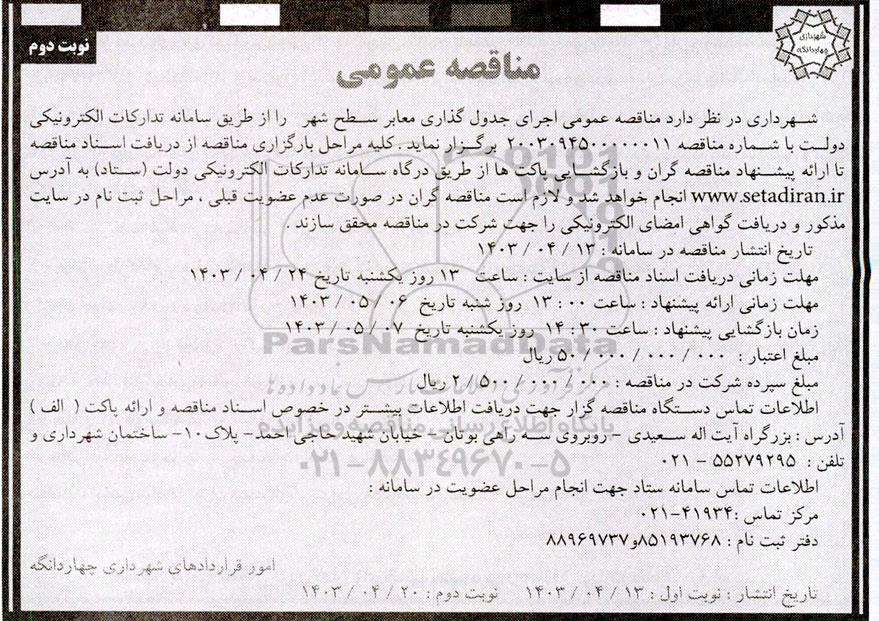 شهرداری
چهاردانگه
نوبت دوم
مناقصه عمومی
شهرداری در نظر دارد مناقصه عمومی اجرای جدول گذاری معابر سطح شهر را از طریق سامانه تدارکات الکترونیکی
دولت با شماره مناقصه ۲۰۰۳۰۹۴۵۰۰۰۰۰۰۱۱ برگزار نماید . کلیه مراحل بارگزاری مناقصه از دریافت اسناد مناقصه
تا ارائه پیشنهاد مناقصه گران و بازگشایی پاکت ها از طریق درگاه سامانه تدارکات الکترونیکی دولت (ستاد) به آدرس
www.setadiran.ir انجام خواهد شد و لازم است مناقصه گران در صورت عدم عضویت قبلی ، مراحل ثبت نام در سایت
مذکور و دریافت گواهی امضای الکترونیکی را جهت شرکت در مناقصه محقق سازند .
تاریخ انتشار مناقصه در سامانه : ۱۳ / ۰۴ / ۱۴۰۳
مهلت زمانی دریافت اسناد مناقصه از سایت : ساعت ۱۳ روز یکشنبه تاریخ ۲۴ / ۰۴ / ۱۴۰۳
مهلت زمانی ارائه پیشنهاد : ساعت ۰۰ : ۱۳ روز شنبه تاریخ ۰۶ / ۰۵ / ۱۴۰۳
زمان بازگشایی پیشنهاد : ساعت ۳۰ : ۱۴ روز یکشنبه تاریخ ۰۷ / ۰۵ / ۱۴۰۳
ParsNamadData
مبلغ اعتبار : ۰۰۰ / ۰۰۰ / ۰۰۰ / ۵۰ ریال
مبلغ سپرده شرکت در مناقصه : ۰۰۰ / ۰۰۰ / ۵۰۰ / ۲ ریال
اطلاعات تماس دستگاه مناقصه گزار جهت دریافت اطلاعات بیشتر در خصوص اسناد مناقصه و ارائه پاکت ( الف )
پایگاه اطلاع رسانی مناقصه و مزایده
آدرس : بزرگراه آیت اله سعیدی – روبروی سه راهی بوتان – خیابان شهید حاجی احمد- پلاک ۱۰- ساختمان شهرداری و
تلفن : ۵۵۲۷۹۲۹۵ - ۰۲۱
۰۲۱-۸۸۳۴۹۶۷۰-۵
اطلاعات تماس سامانه ستاد جهت انجام مراحل عضویت در سامانه :
مرکز تماس : ۴۱۹۳۴-۰۲۱
دفتر ثبت نام : ۸۵۱۹۳۷۶۸و۸۸۹۶۹۷۳۷
امور قراردادهای شهرداری چهاردانگه
تاریخ انتشار : نوبت اول : ۱۳ / ۰۴ / ۱۴۰۳ نوبت دوم : ۲۰ / ۰۴ / ۱۴۰۳